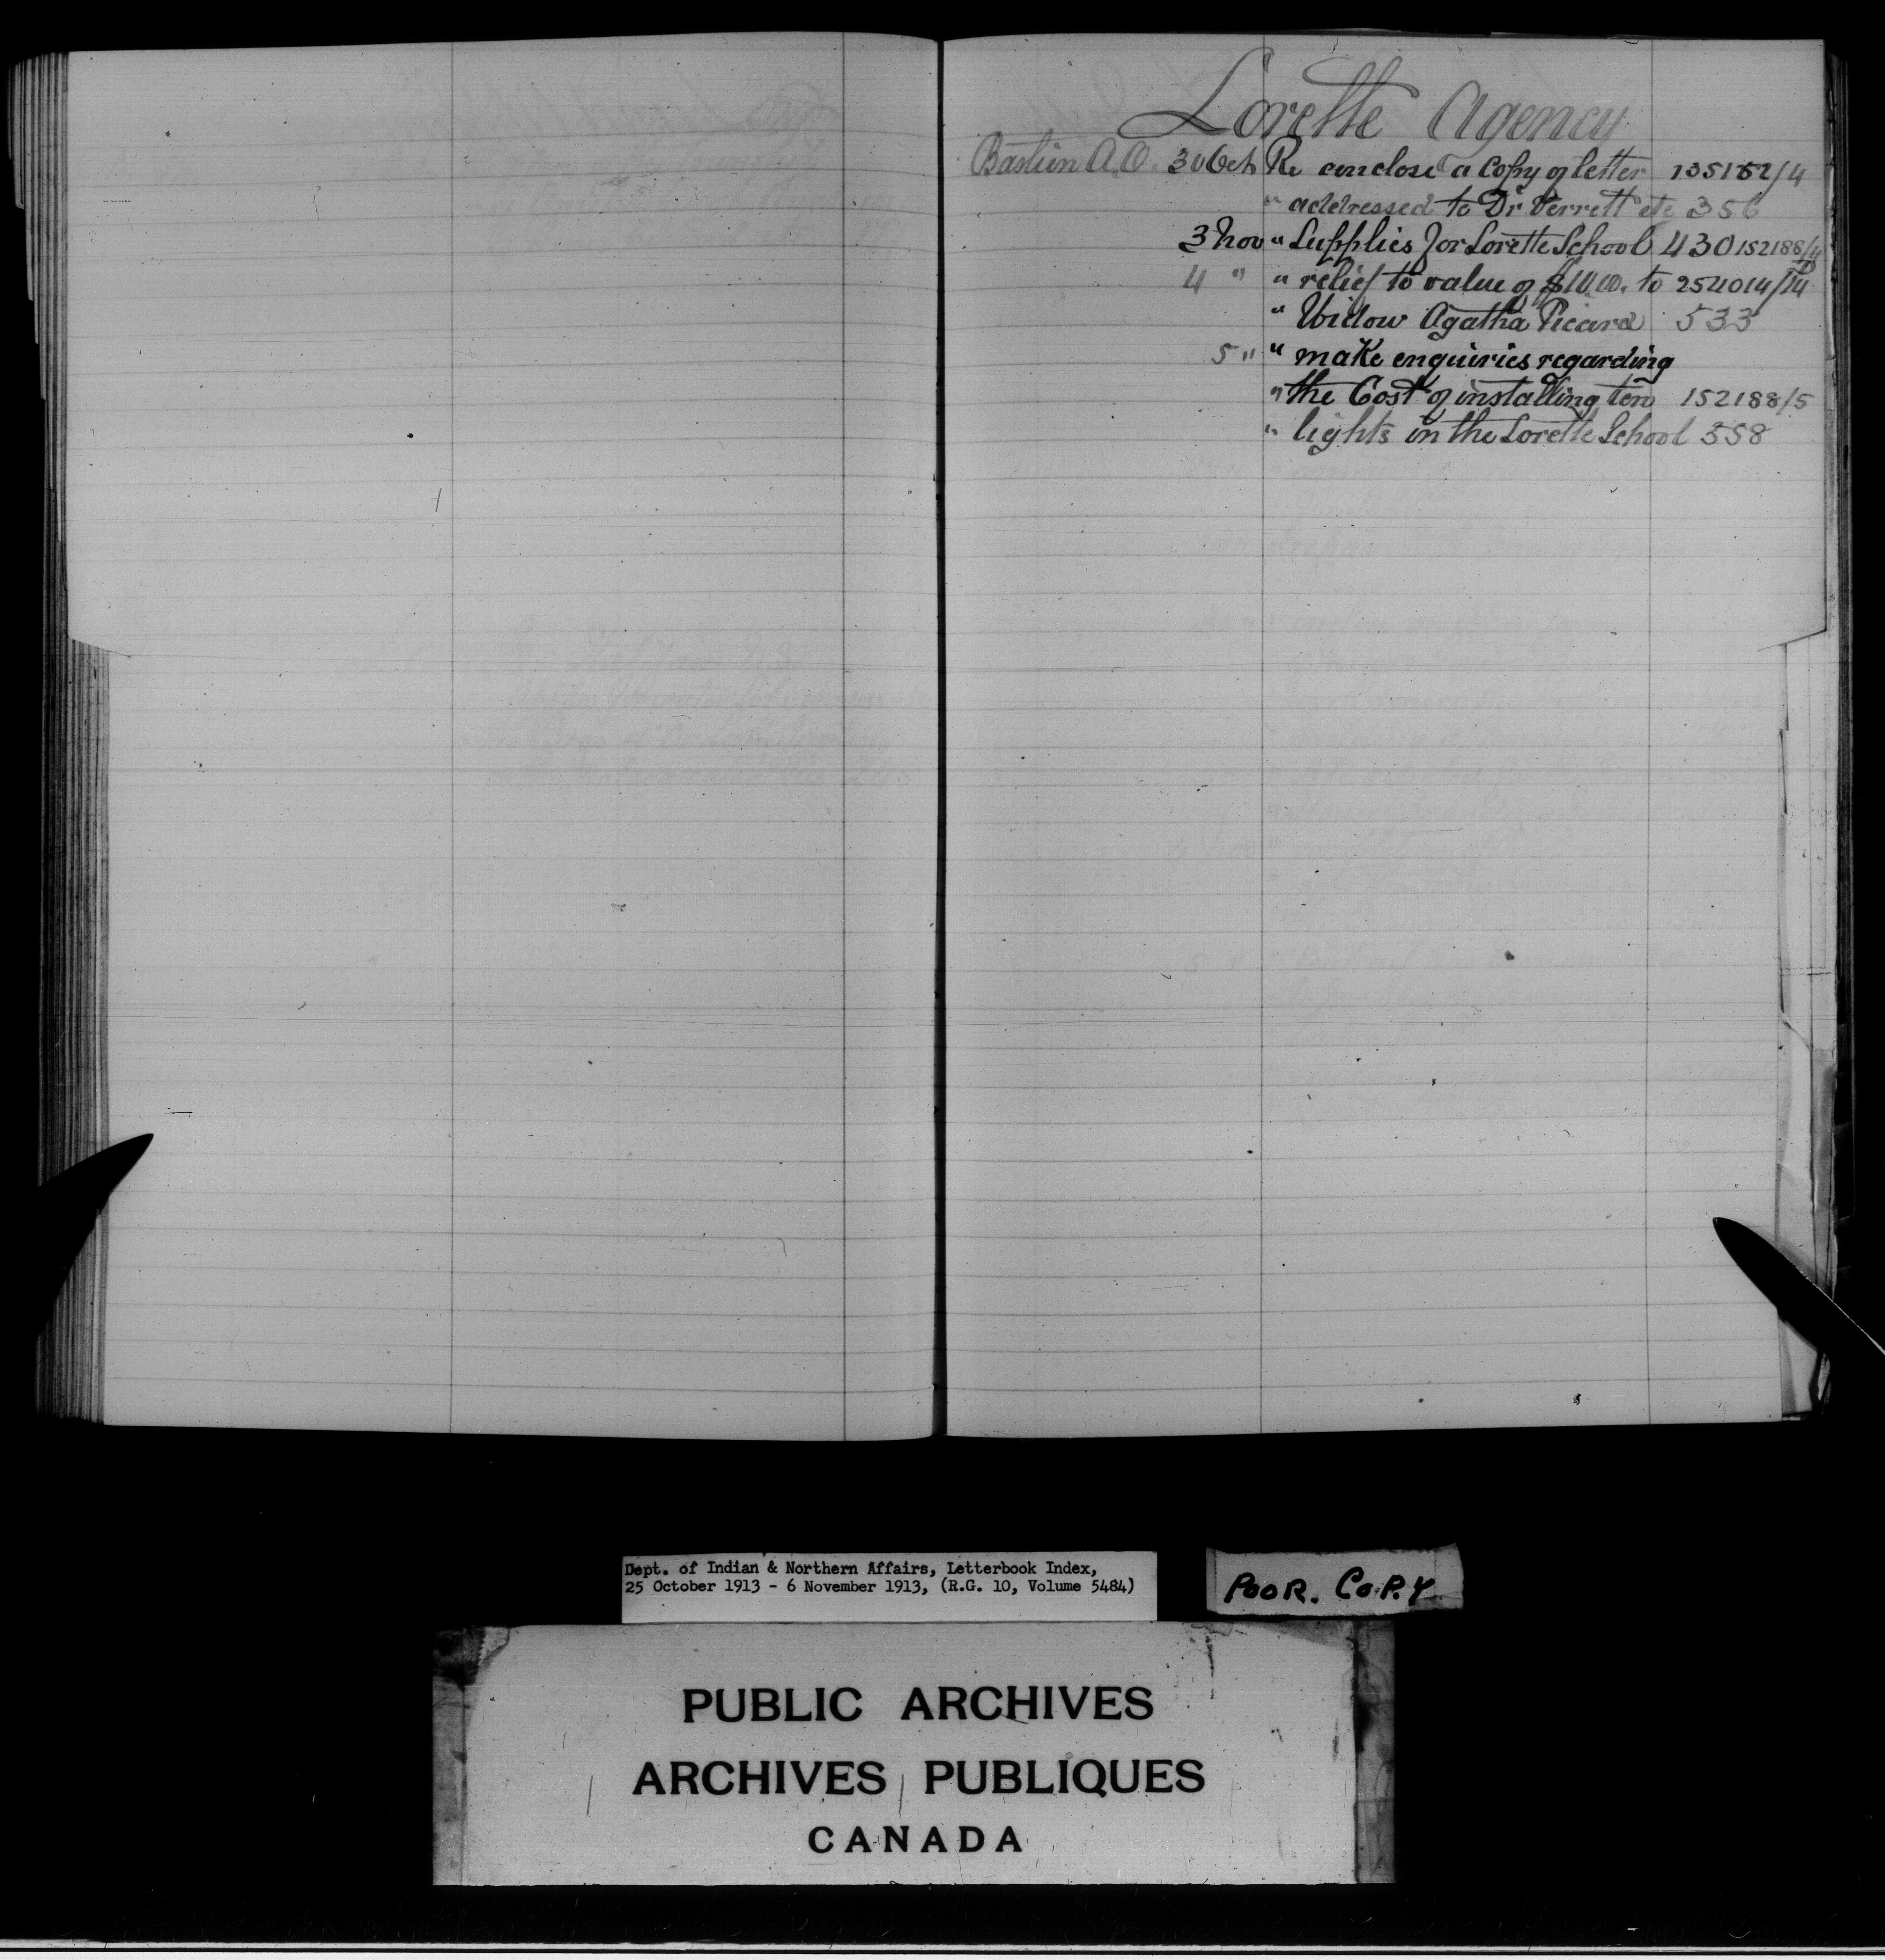 Lorette Agency
Bastien A.O. 30 Oct Re enclose a copy of letter 135152/4
" addressed to Dr Verrett etc 356
3 Nov " Supplies for Lorette School 430 152188/4
4 " " relief to value of $10.00. to 254014/14
" Widow Agatha Picard 533
5 " " make enquiries regarding
" the Cost of installing ten 152188/5
" lights in the Lorette School 558
Dept. of Indian & Northern Affairs, Letterbook Index,
25 October 1913 - 6 November 1913, (R.G. 10, Volume 5484)
POOR. COPY
PUBLIC ARCHIVES
ARCHIVES PUBLIQUES
CANADA